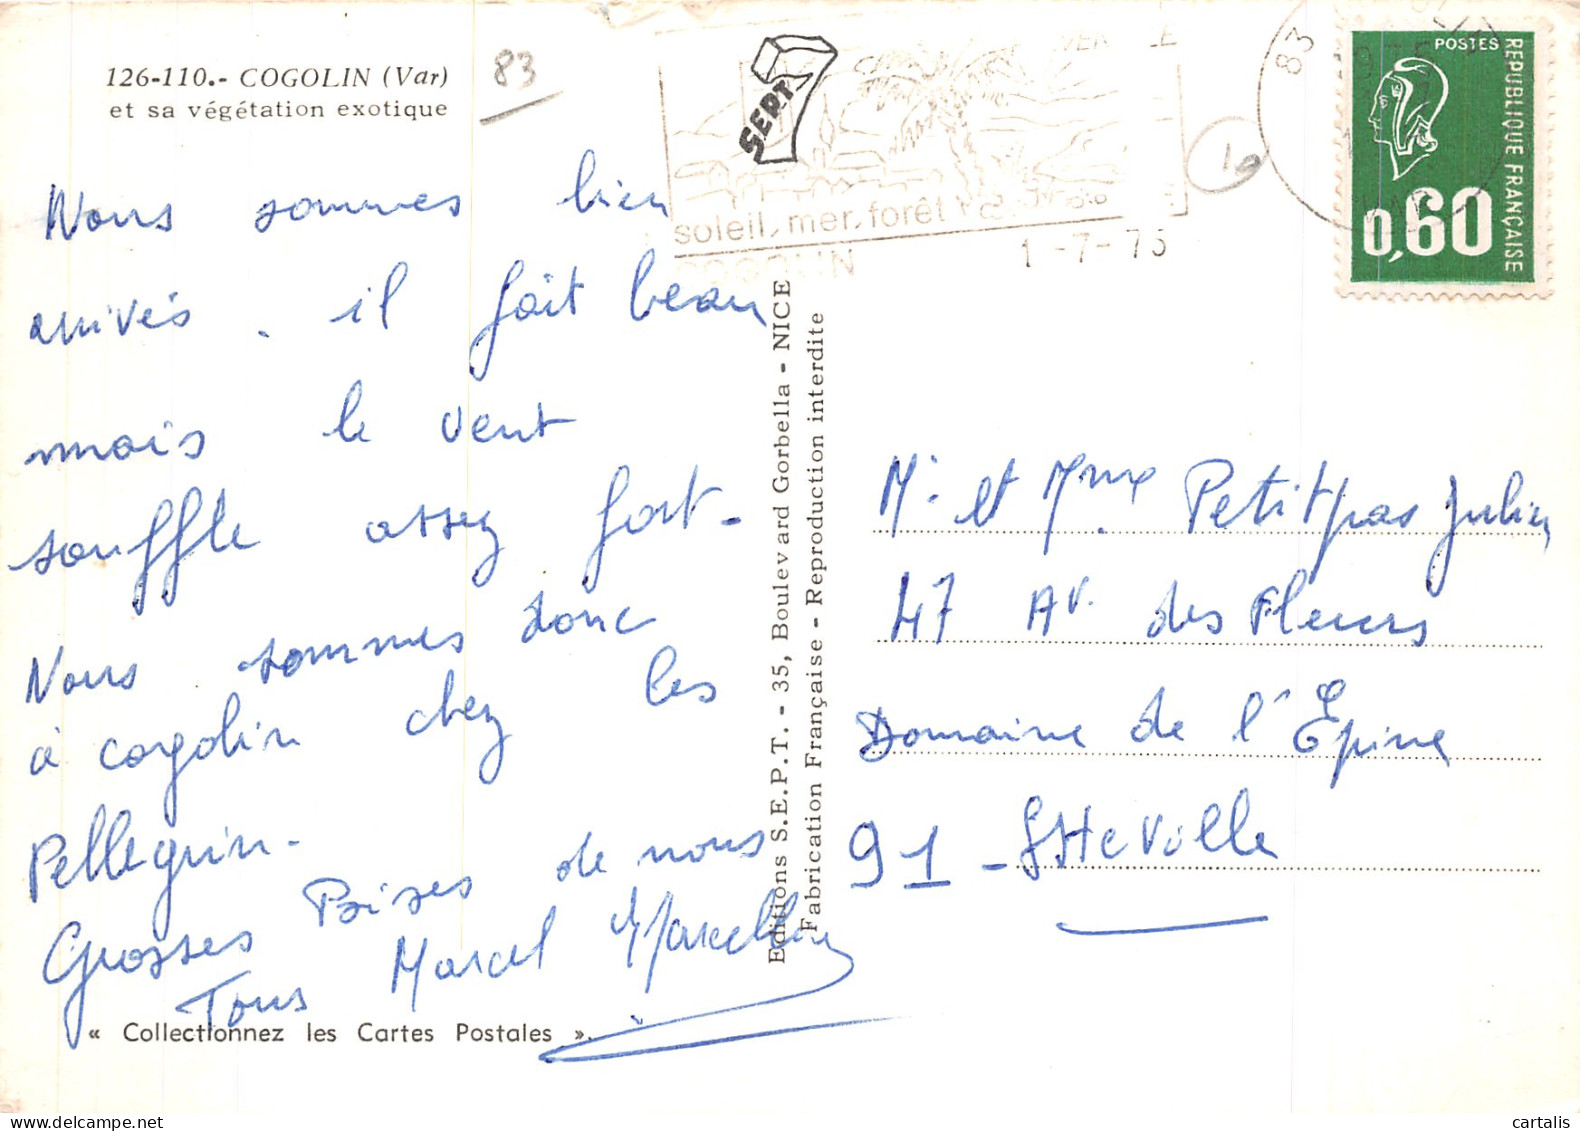 126-110.- COGOLIN (Var)
et sa végétation exotique
83
SEPT
soleil, mer, forêt
COGOLIN
1-7-75
83
POSTES
REPUBLIQUE FRANÇAISE
0,60
Nous sommes bien
arrivés. il fait beau
mais le vent
souffle assez fort.
Nous sommes donc
à cogolin chez les
Pellegrin.
Grosses Bises de nous
Tous Marcel Marcelline
« Collectionnez les Cartes Postales ».
Editions S.E.P.T. - 35, Boulevard Gorbella - NICE
Fabrication Française - Reproduction interdite
Mr et Mme Petitpas Julien
47 Av. des Fleurs
Domaine de l'Epine
91 - Itteville
cartalis